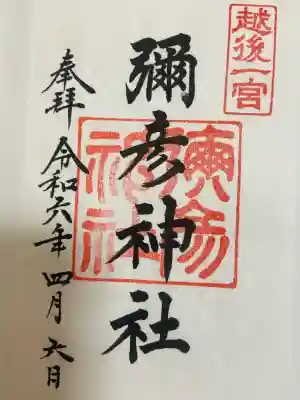 越後一宮
彌彦神社
奉拝 令和六年 四月 六日